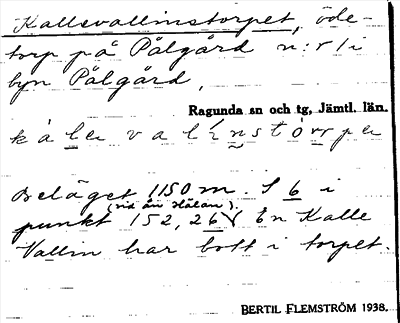 Kallevallinstorpet, öde-
torp på Pålgård n:r 1 i
byn Pålgård,
Ragunda sn och tg, Jämtl. län.
kàlle valínstòrpen
Beläget 1150 m. S 6 i
(vid ån Hålan).
punkt 152,26 En Kalle
Vallin har bott i torpet.
BERTIL FLEMSTRÖM 1938.